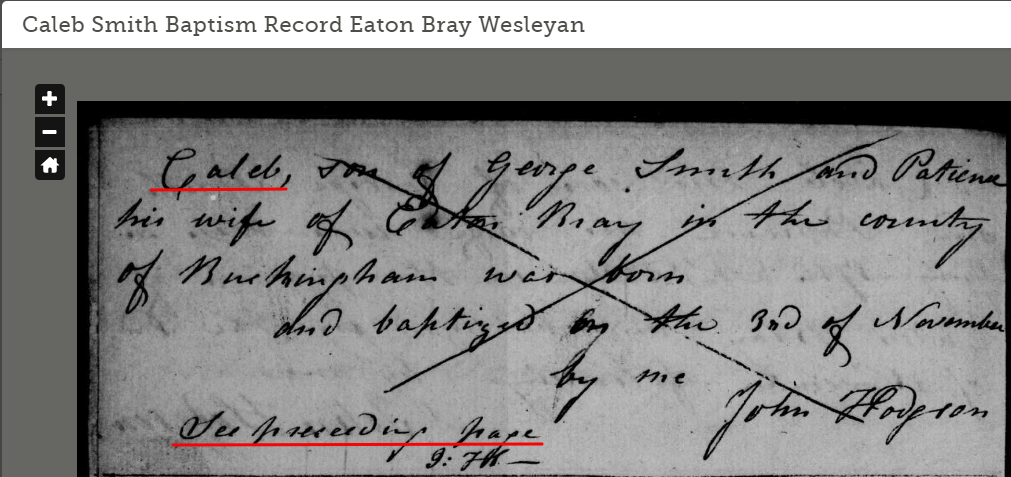 Caleb Smith Baptism Record Eaton Bray Wesleyan
Caleb, son of George Smith and Patience
his wife of Eaton Bray in the county
of Buckingham was born
and baptized on the 3rd of November
by me
John Hodgson
See preceeding page